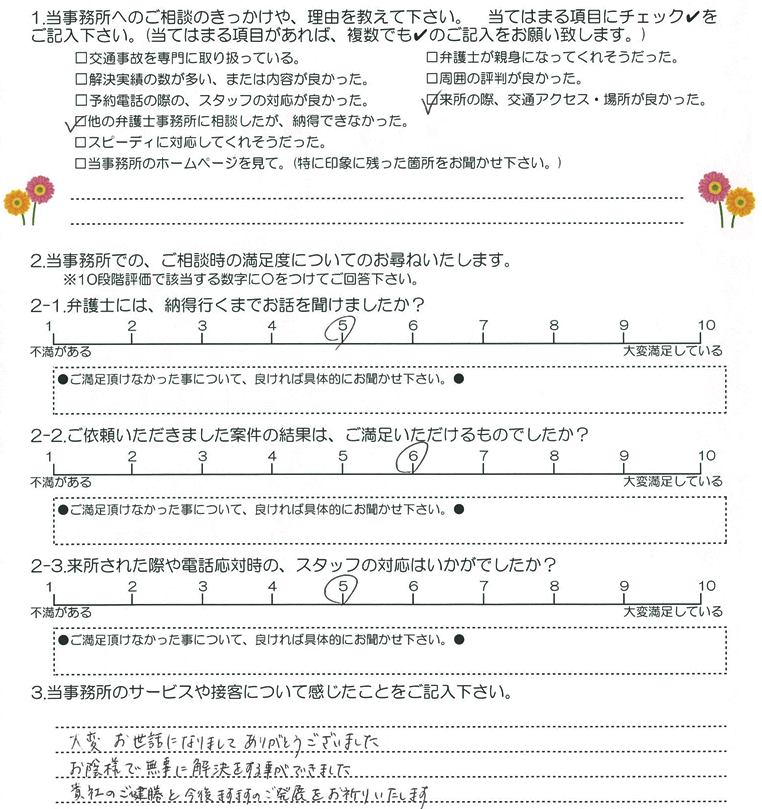 1.当事務所へのご相談のきっかけや、理由を教えて下さい。　当てはまる項目にチェック✔を
ご記入下さい。(当てはまる項目があれば、複数でも✔のご記入をお願い致します。)
□交通事故を専門に取り扱っている。　□弁護士が親身になってくれそうだった。
□解決実績の数が多い、または内容が良かった。　□周囲の評判が良かった。
□予約電話の際の、スタッフの対応が良かった。　☑来所の際、交通アクセス・場所が良かった。
☑他の弁護士事務所に相談したが、納得できなかった。
□スピーディに対応してくれそうだった。
□当事務所のホームページを見て。(特に印象に残った箇所をお聞かせ下さい。)
2.当事務所での、ご相談時の満足度についてのお尋ねいたします。
※10段階評価で該当する数字に○をつけてご回答下さい。
2-1.弁護士には、納得行くまでお話を聞けましたか？
1 2 3 4 5 6 7 8 9 10
不満がある　大変満足している
●ご満足頂けなかった事について、良ければ具体的にお聞かせ下さい。●
2-2.ご依頼いただきました案件の結果は、ご満足いただけるものでしたか？
1 2 3 4 5 6 7 8 9 10
不満がある　大変満足している
●ご満足頂けなかった事について、良ければ具体的にお聞かせ下さい。●
2-3.来所された際や電話応対時の、スタッフの対応はいかがでしたか？
1 2 3 4 5 6 7 8 9 10
不満がある　大変満足している
●ご満足頂けなかった事について、良ければ具体的にお聞かせ下さい。●
3.当事務所のサービスや接客について感じたことをご記入下さい。
大変 お世話になりまして ありがとうございました
お陰様で無事に解決をする事ができました
貴社のご健勝と今後ますますのご発展をお祈りいたします